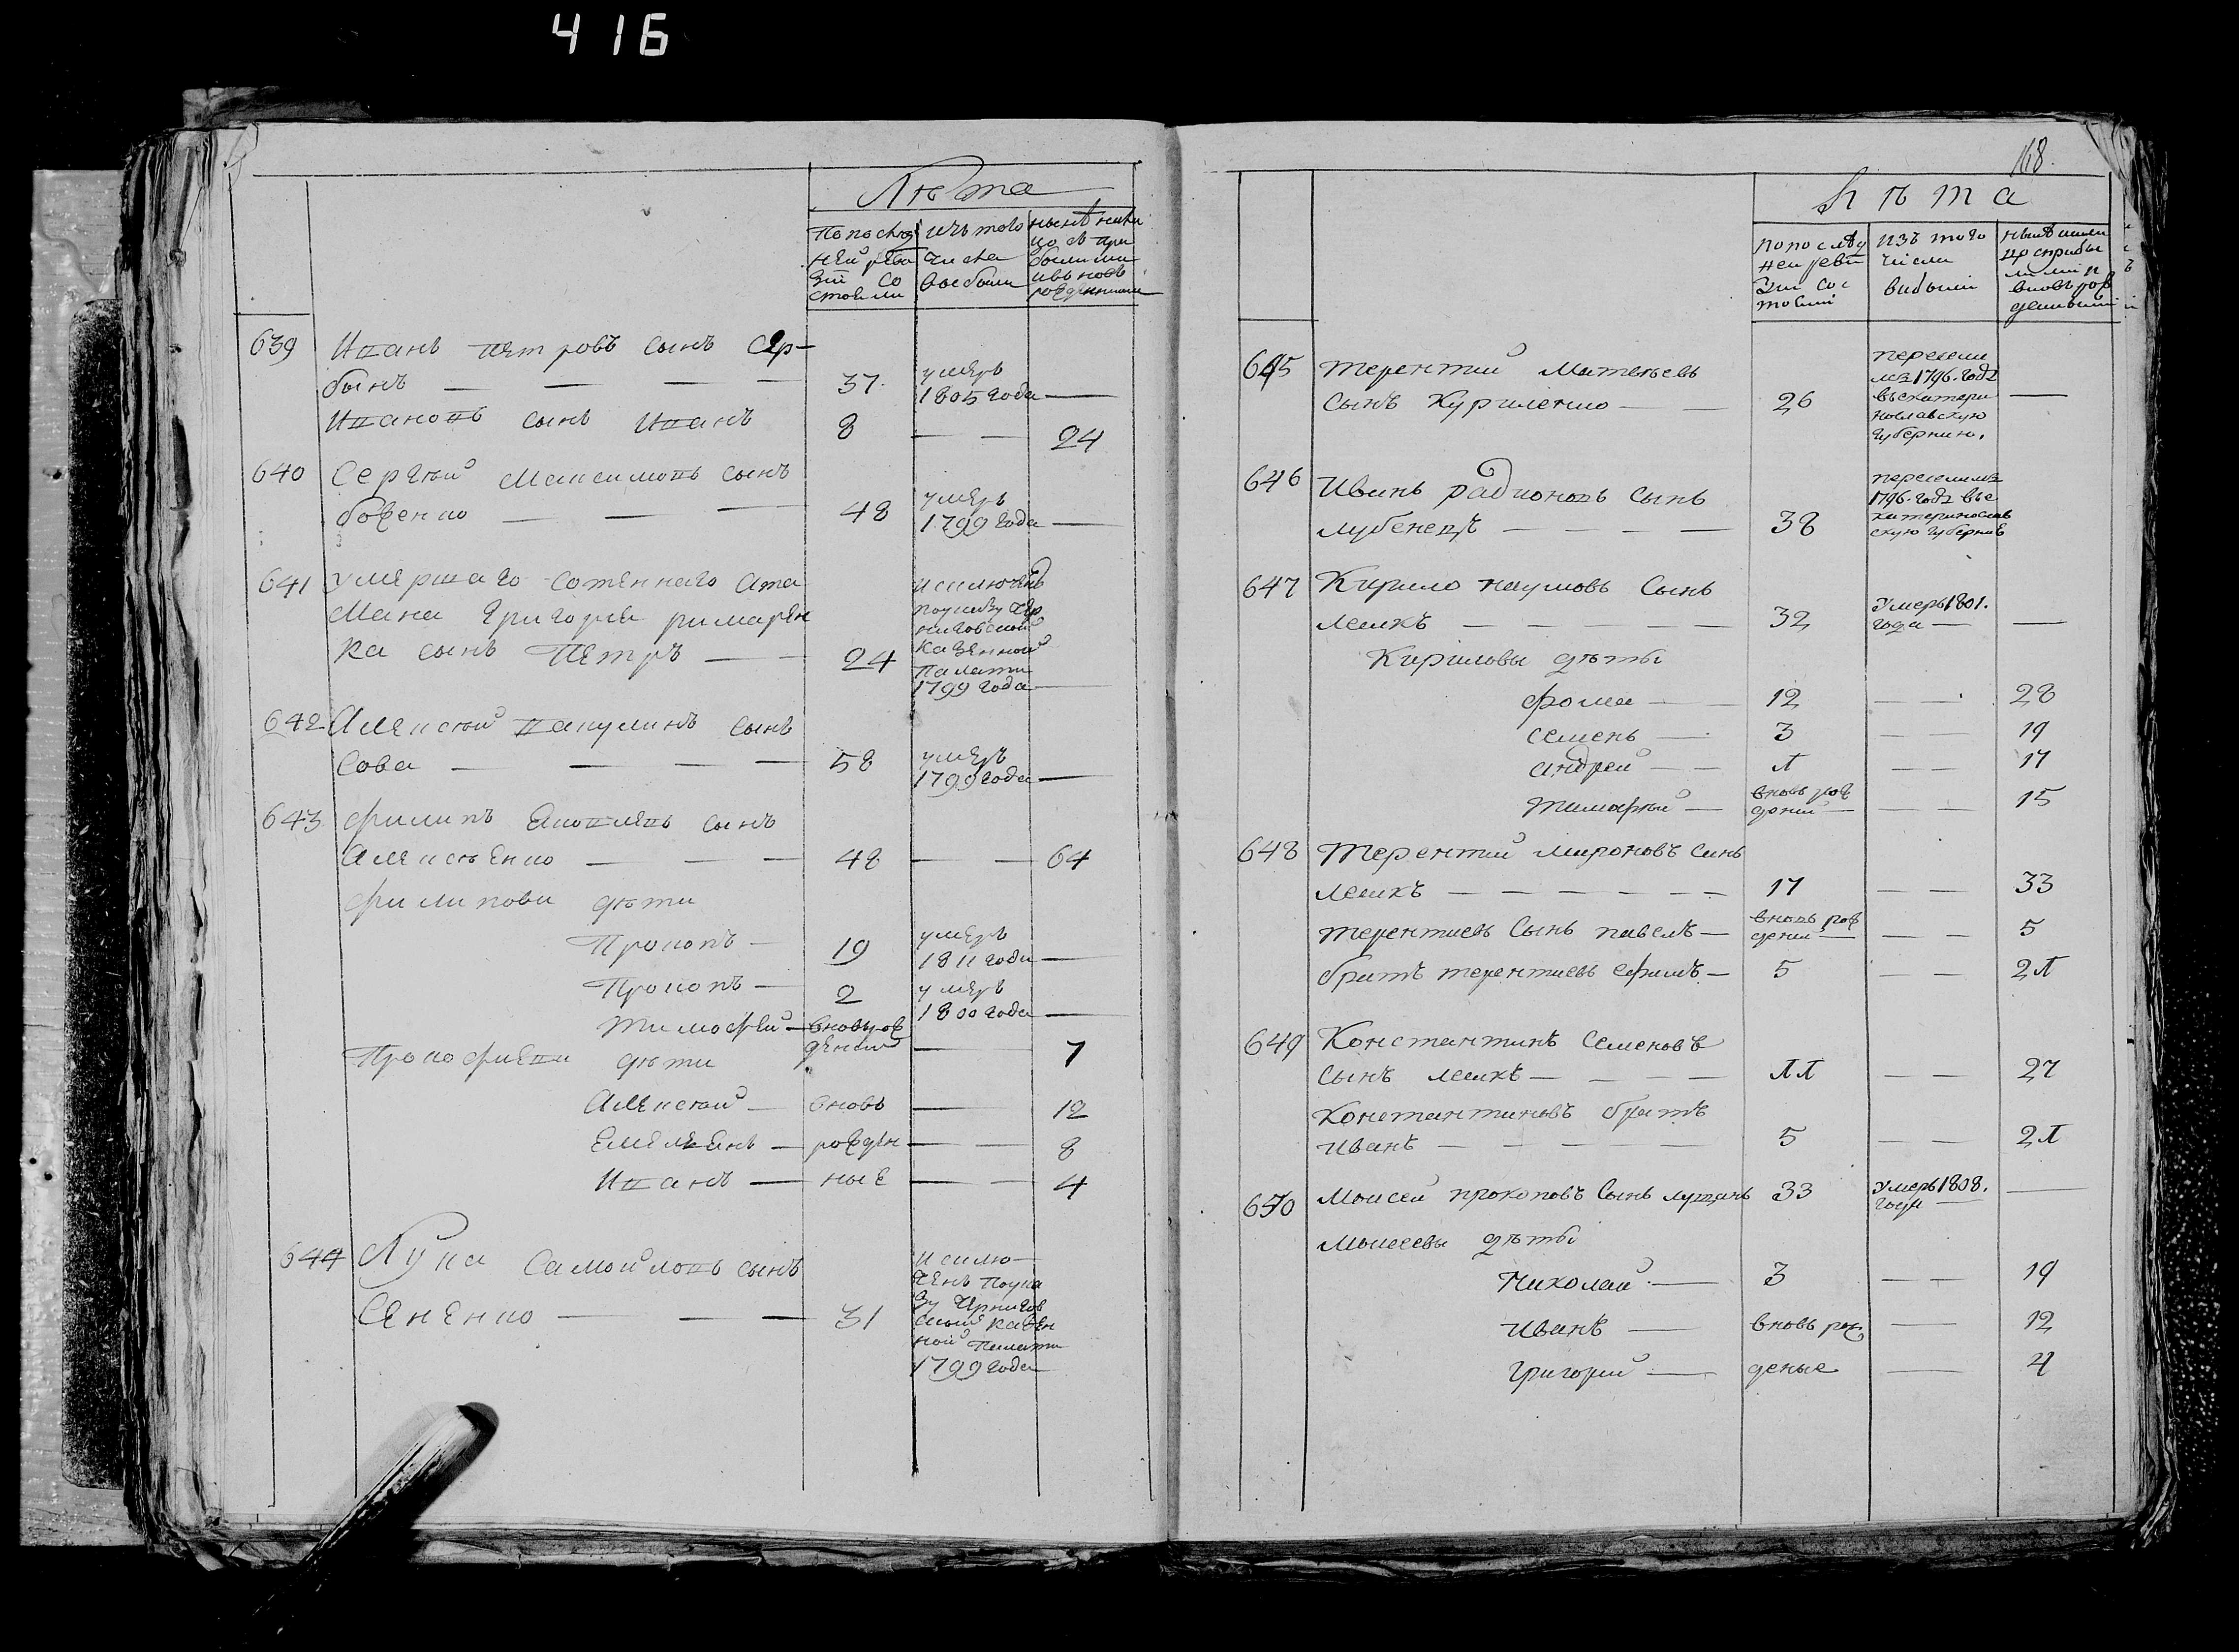 416
Лѣта
По послед ней ревизіи состояли
Изъ того числа выбыли
Нынѣ налицо съ прибылими и вновь рожденними
639 Иванъ Петровъ сынъ Сер-
бынъ — — — — 37. умеръ 1805 года —
Ивановъ сынъ Иванъ 8 — — 24
640 Сергѣй Максимовъ сынъ
боженко — — — 48 умеръ 1799 года —
641 Умершаго сотеннаго ата
мана Григорія римарен
ка сынъ Петръ — — 24 исключенъ по указу Чер ниговской казенной Палати 1799 года —
642 Алексѣй Вакулинъ сынъ
Сова — — — — 58 умеръ 1799 года —
643 Филипъ Яковлевъ сынъ
Алексѣенко — — — 48 — — 64
Филипови дѣти
Прокопъ — 19 умеръ 1811 года —
Прокопъ — 2 умеръ 1800 года —
Тимофей — вновь рож
денній — 7
Прокофиеви дѣти
Алексѣй — вновь — 12
Емельянъ — рожден — — 8
Иванъ — ные — — 4
644 Лука Самойловъ сынъ
Сененко — — — 31 исклю ченъ по ука зу Чернигов ской казен ной Палати 1799 года —
168.
Лѣта
по послѣд ней реви зіи сос тояли
изъ того числа выбыли
645 Терентій Матвѣевъ
сынъ Куриленко — — 26 переселился 1796. года въ екатери нославскую губернию. —
646 Иванъ радионовъ сынъ
лубенецъ — — — — 38 переселился 1796. года въ е катеринослав скую губернию
647 Кирило наумовъ сынъ
лешкъ — — — — — 32 Умеръ 1801. года — —
Кириловы дѣты
фома — — 12 — — 28
семенъ — 3 — — 19
андрей — — 1 — — 17
тимофей — вновь рож дений — — — 15
648 Терентий мироновъ синъ
лешкъ — — — — — — 17 — — 33
терентиевъ сынъ павелъ — вновь рож дений — — — 5
братъ терентиевъ ефимъ — 5 — — 21
649 Константинъ семеновъ
сынъ лешкъ — — — — 11 — — 27
константиновъ братъ
иванъ — — — — — 5 — — 21
650 Моисей прокоповъ сынъ луцанъ 33 Умеръ 1808. года — —
моисеевы дѣты
николай — 3 — — 19
иванъ — вновь рож — 12
григорий — деные — 4